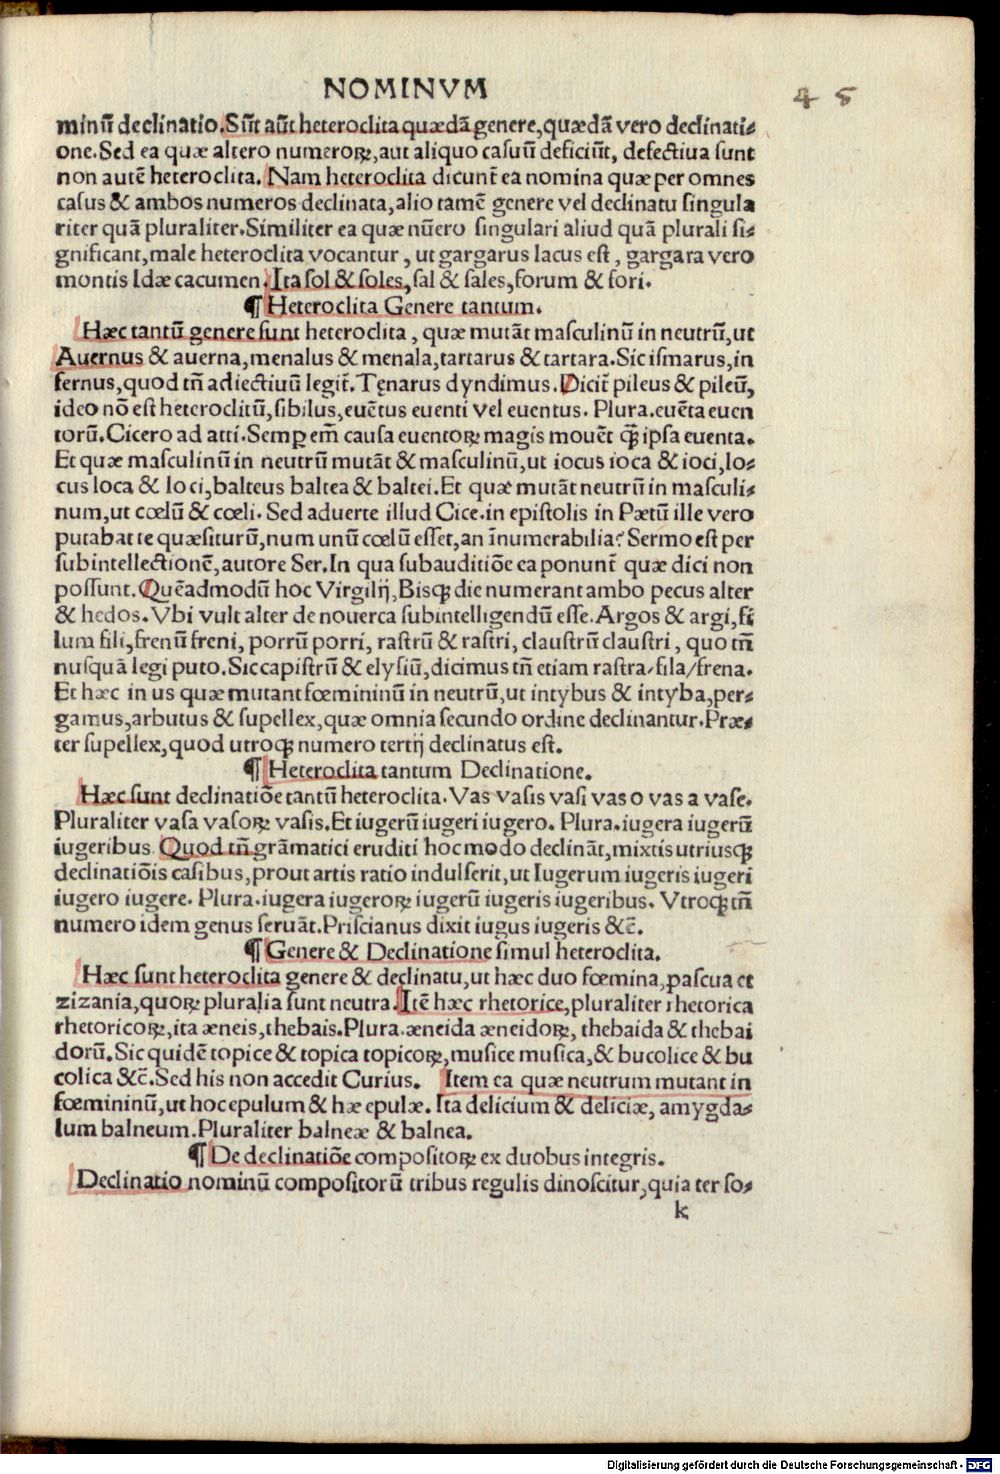 NOMINVM
45
minũ declinatio.Sũt aũt heteroclita quædã genere,quædã vero declinati⸗
one.Sed ea quæ altero numeroꝝ,aut aliquo casuũ deficiũt, defectiua sunt
non autẽ heteroclita. Nam heteroclita dicunt̃ ea nomina quæ per omnes
casus & ambos numeros declinata,alio tamẽ genere vel declinatu singula
riter quã pluraliter.Similiter ea quæ nũero singulari aliud quã plurali si⸗
gnificant,male heteroclita vocantur, ut gargarus lacus est, gargara vero
montis Idæ cacumen.Ita sol & soles,sal & sales,forum & fori.
¶ Heteroclita Genere tantum.
Hæc tantũ genere sunt heteroclita, quæ mutãt masculinũ in neutrũ,ut
Auernus & auerna,menalus & menala,tartarus & tartara.Sic ismarus,in
fernus,quod tñ adiectiuũ legit̃.Tęnarus dyndimus.Dicit̃ pileus & pileũ,
ideo nõ est heteroclitũ,sibilus,euẽtus euenti vel euentus. Plura.euẽta euen
torũ.Cicero ad atti.Semꝑ em̃ causa euentoꝝ magis mouẽt q̃ꝫ ipsa euenta.
Et quæ masculinũ in neutrũ mutãt & masculinũ,ut iocus ioca & ioci,lo⸗
cus loca & loci,balteus baltea & baltei.Et quæ mutãt neutrũ in masculi⸗
num,ut cœlũ & cœli. Sed aduerte illud Cice.in epistolis in Pætũ ille vero
putabat te quæsiturũ,num unũ cœlũ esset,an ĩnumerabilia? Sermo est per
subintellectionẽ,autore Ser.In qua subauditiõe ea ponunt̃ quæ dici non
possunt.Quẽadmodũ hoc Virgilij,Bisqꝫ die numerant ambo pecus alter
& hedos.Vbi vult alter de nouerca subintelligendũ esse.Argos & argi,fi
lum fili,frenũ freni, porrũ porri, rastrũ & rastri, claustrũ claustri, quo tñ
nusquã legi puto.Sic capistrũ & elysiũ,dicimus tñ etiam rastra/fila/frena.
Et hæc in us quæ mutant fœmininũ in neutrũ,ut intybus & intyba,per⸗
gamus,arbutus & supellex,quæ omnia secundo ordine declinantur.Præ⸗
ter supellex,quod utroqꝫ numero tertij declinatus est.
¶ Heteroclita tantum Declinatione.
Hæc sunt declinatiõe tantũ heteroclita.Vas vasis vasi vas o vas a vase.
Pluraliter vasa vasoꝝ vasis.Et iugerũ iugeri iugero. Plura.iugera iugerũ
iugeribus. Quod tñ grãmatici eruditi hoc modo declinãt,mixtis utriusqꝫ
declinatiõis casibus,prout artis ratio indulserit,ut Iugerum iugeris iugeri
iugero iugere. Plura.iugera iugeroꝝ iugerũ iugeris iugeribus. Vtroqꝫ tñ
numero idem genus seruãt.Priscianus dixit iugus iugeris &c̃.
¶ Genere & Declinatione simul heteroclita.
Hæc sunt heteroclita genere & declinatu,ut hæc duo fœmina,pascua et
zizania,quoꝝ pluralia sunt neutra.Itẽ hæc rhetorice,pluraliter rhetorica
rhetoricoꝝ,ita æneis,thebais.Plura.æneida æneidoꝝ, thebaida & thebai
dorũ.Sic quidẽ topice & topica topicoꝝ,musice musica,& bucolice & bu
colica &c̃.Sed his non accedit Curius. Item ea quæ neutrum mutant in
fœmininũ,ut hoc epulum & hæ epulæ. Ita delicium & deliciæ, amygda⸗
lum balneum.Pluraliter balneæ & balnea.
¶ De declinatiõe compositoꝝ ex duobus integris.
Declinatio nominũ compositorũ tribus regulis dinoscitur,quia ter so⸗
k
Digitalisierung gefördert durch die Deutsche Forschungsgemeinschaft - DFG